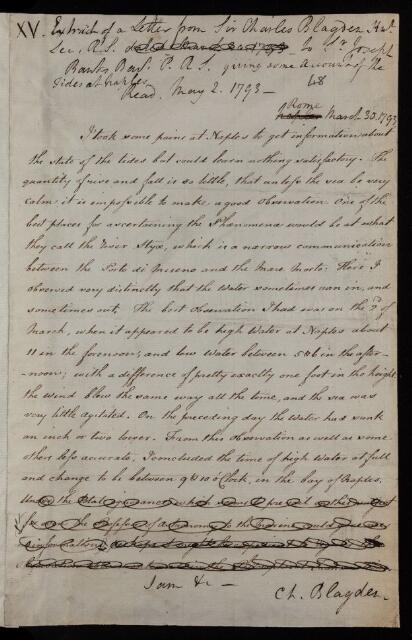 XV. Extract of a Letter from Sir Charles Blagden, Knt.
Sec. R.S. dated March 30. 1793 to Sr. Joseph
Banks, Bart. P.R.S. giving some Account of the
Tides at Naples
Read May 2. 1793 —
48
Rome
Naples March 30. 1793
I took some pains at Naples to get information about
the state of the tides but could learn nothing satisfactory. The
quantity of rise and fall is so little, that unless the sea be very
calm it is impossible to make a good observation. One of the
best places for ascertaining the Phænomena would be at what
they call the River Styx, which is a narrow communication
between the Porto di Miseno and the Mare Morto: Here I
observed very distinctly that the Water sometimes ran in, and
sometimes out. The best observation I had was on the
March, when it appeared to be high Water at Naples about
11 in the forenoon; and low Water between 5 & 6 in the after-
-noon; with a difference of pretty exactly one foot in the height
the wind blew the same way all the time, and the sea was
very little agitated. On the preceding day the Water had sunk
an inch or two lower. From this observation as well as some
others less accurate, I concluded the time of high Water at full
and change to be between 9 & 10 o'Clock, in the bay of Naples.
I am &c —
Ch. Blagden.